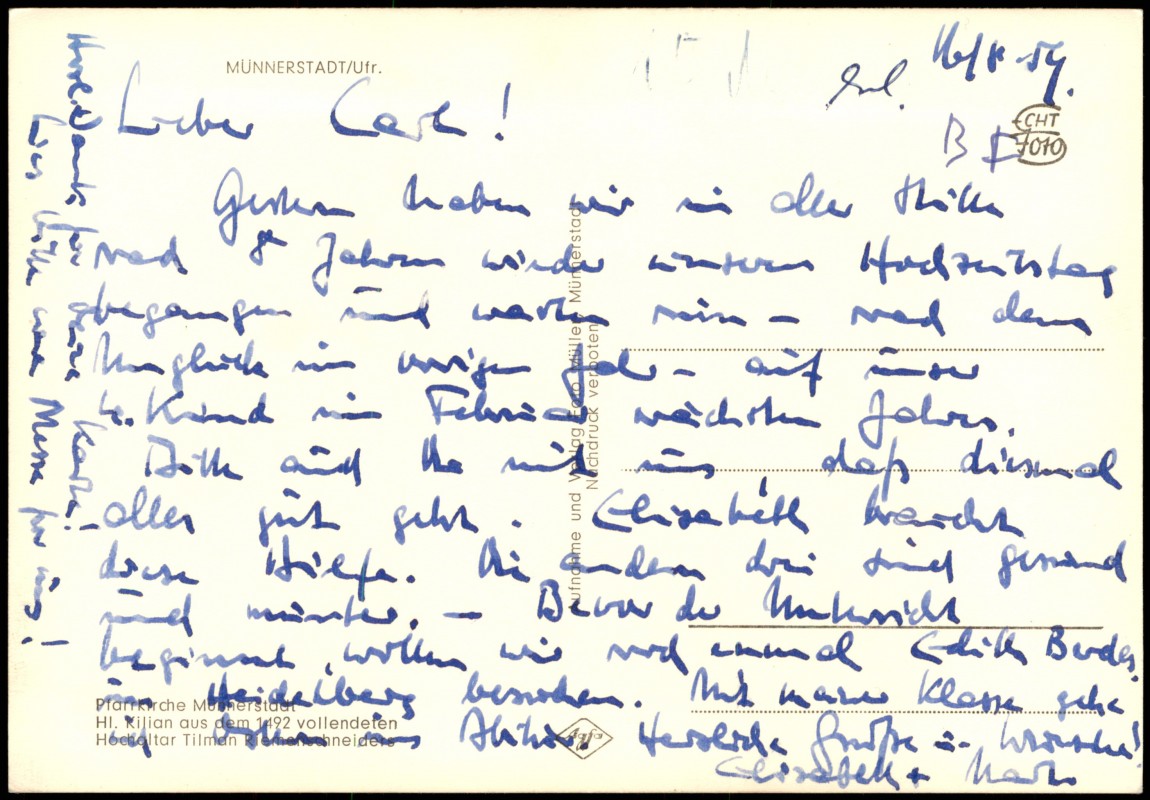 MÜNNERSTADT/Ufr.
16/8.59.
ECHT
FOTO
Lieber Carl!
Gestern haben wir in aller Stille
nach 8 Jahren wieder unseren Hochzeitstag
begangen und warten nun – nach dem
Unglück im vorigen Jahr – auf unser
4. Kind im Februar nächsten Jahres.
Bitte auch Du mit uns, daß diesmal
alles gut geht. Elisabeth braucht
diese Hilfe. Die anderen drei sind gesund
und munter. – Bevor der Unterricht
beginnt, wollen wir noch einmal Edith
in Heidelberg besuchen. Mit meiner Klasse gehe
ich Ostern ins Abitur. Herzliche Grüße u. Wünsche!
Elisabeth +
Herzl. Dank für Deine Karte!
Lies bitte eine Messe für uns!
Aufnahme und Verlag Foto Müller, Münnerstadt
Nachdruck verboten
Pfarrkirche Münnerstadt
Hl. Kilian aus dem 1492 vollendeten
Hochaltar Tilman Riemenschneiders
Agfa